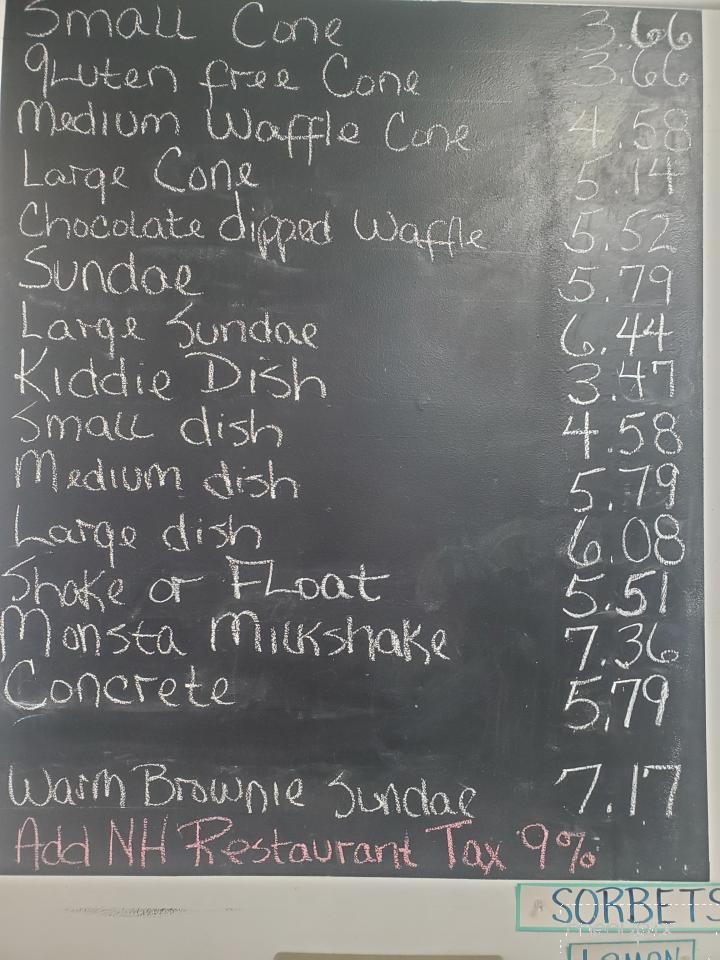 Small Cone 3.66
gluten free Cone 3.66
Medium Waffle Cone 4.58
Large Cone 5.14
Chocolate dipped Waffle 5.52
Sundae 5.79
Large Sundae 6.44
Kiddie Dish 3.47
Small dish 4.58
Medium dish 5.79
Large dish 6.08
Shake or Float 5.51
Monsta Milkshake 7.36
Concrete 5.79
Warm Brownie Sundae 7.17
Add NH Restaurant Tax 9%
SORBETS
LEMON